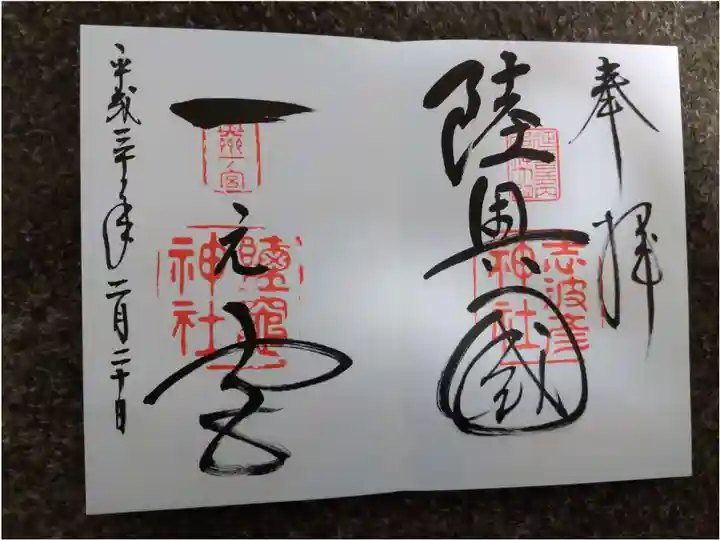 奉拝
陸奥國
志波彦
神社
一之宮
奥州
一ノ宮
鹽竈
神社
平成三十年二月二十日